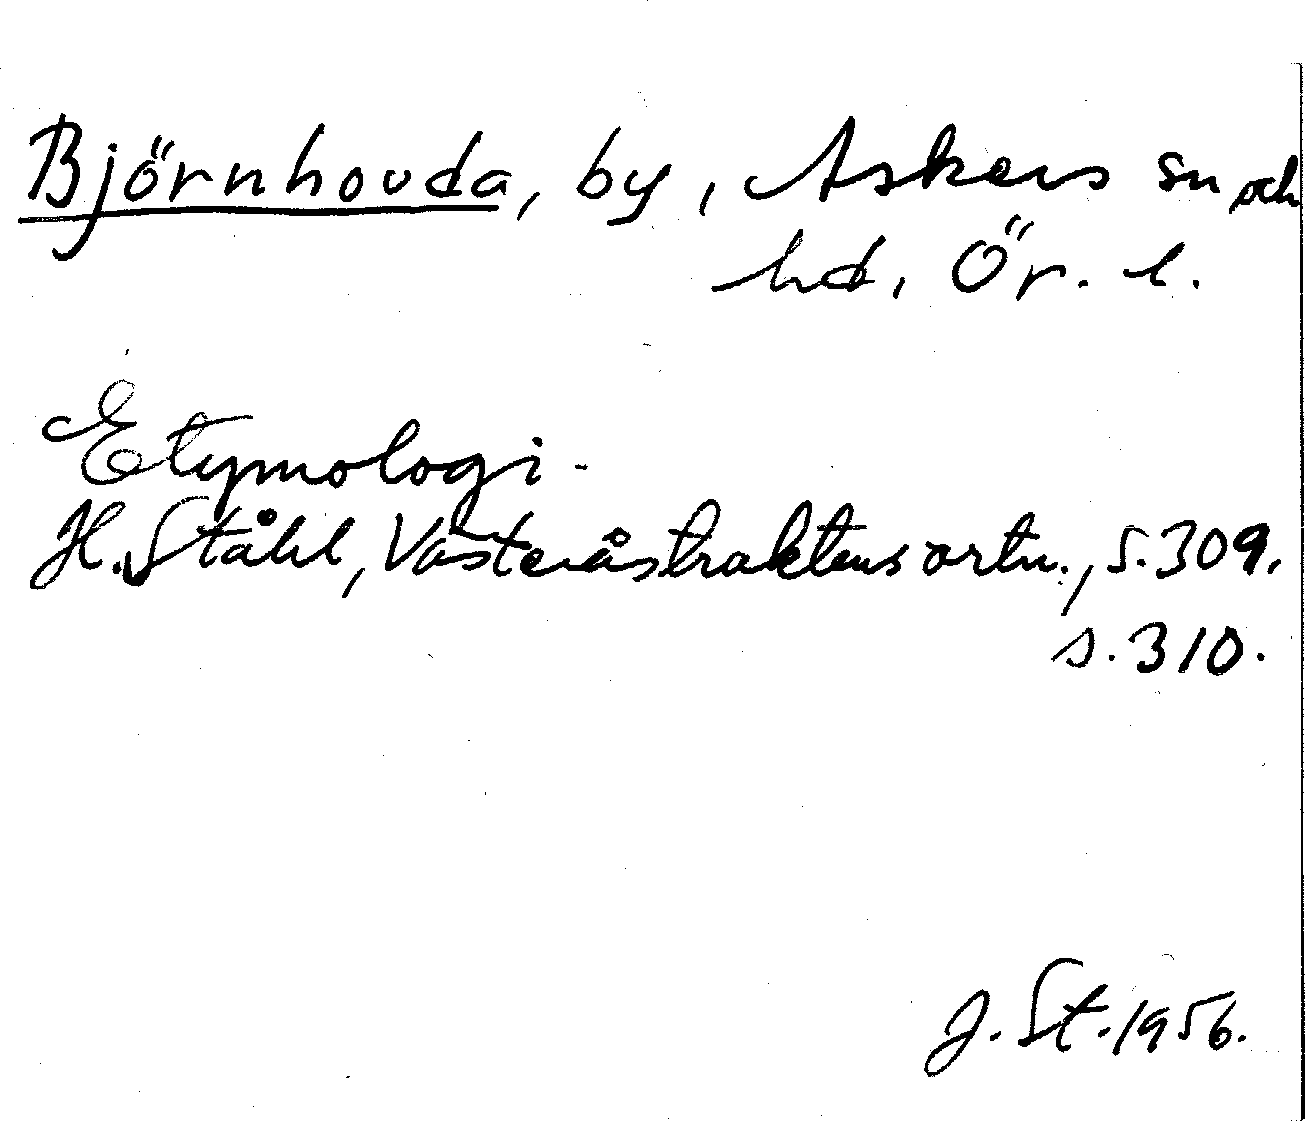 Björnhovda, by, Askers sn och
hd, Ör. l.
Etymologi -
H. Ståhl, Västeråstraktens ortn., s. 309.
s. 310.
J. St. 1956.